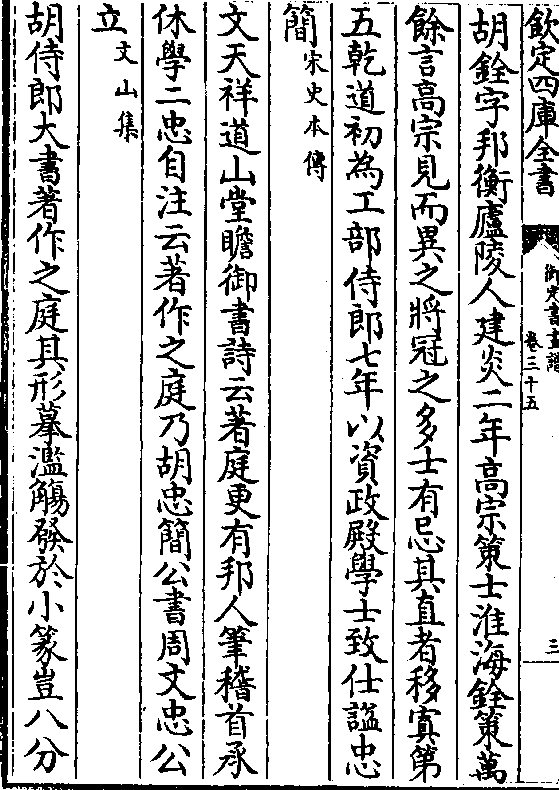 欽定四庫全書
御定書畫譜
卷三十五
三
胡銓字邦衡廬陵人建炎二年高宗策士淮海銓策萬
餘言高宗見而異之將冠之多士有忌其直者移寘第
五乾道初為工部侍郎七年以資政殿學士致仕諡忠
簡宋史本傳
文天祥道山堂瞻御書詩云著庭更有邦人筆稽首承
休學二忠自注云著作之庭乃胡忠簡公書周文忠公
立文山集
胡侍郎大書著作之庭其形摹濫觴發於小篆豈八分